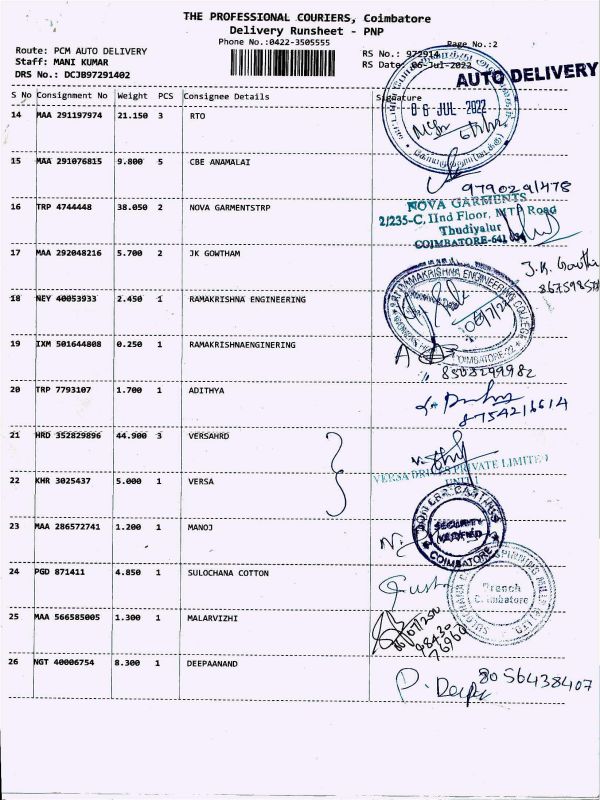 THE PROFESSIONAL COURIERS, Coimbatore
Delivery Runsheet - PNP
Phone No.:0422-3505555
Page No.:2
Route: PCM AUTO DELIVERY
RS No.: 972914
Staff: MANI KUMAR
RS Date: 06-Jul-2022
DRS No.: DCJB97291402
AUTO DELIVERY
S No Consignment No Weight PCS Consignee Details Signature
14 MAA 291197974 21.150 3 RTO
06 JUL 2022
15 MAA 291076815 9.800 5 CBE ANAMALAI
9790291478
16 TRP 4744448 38.050 2 NOVA GARMENTSTRP
NOVA GARMENTS
2/235-C, IInd Floor, MTP Road
Thudiyalur
COIMBATORE-641 034
17 MAA 292048216 5.700 2 JK GOWTHAM
18 NEY 40053933 2.450 1 RAMAKRISHNA ENGINEERING
SRI RAMAKRISHNA ENGINEERING COLLEGE
COIMBATORE-22
19 IXM 501644808 0.250 1 RAMAKRISHNAENGINERING
20 TRP 7793107 1.700 1 ADITHYA
8754216614
21 HRD 352829896 44.900 3 VERSAHRD
VERSA DRIVES PRIVATE LIMITED
UNIT 1
22 KHR 3025437 5.000 1 VERSA
23 MAA 286572741 1.200 1 MANOJ
SECURITY
VERIFIED
COIMBATORE
24 PGD 871411 4.850 1 SULOCHANA COTTON
Branch
Coimbatore
25 MAA 566585005 1.300 1 MALARVIZHI
26 NGT 40006754 8.300 1 DEEPAANAND
P. Deepa
8056438407